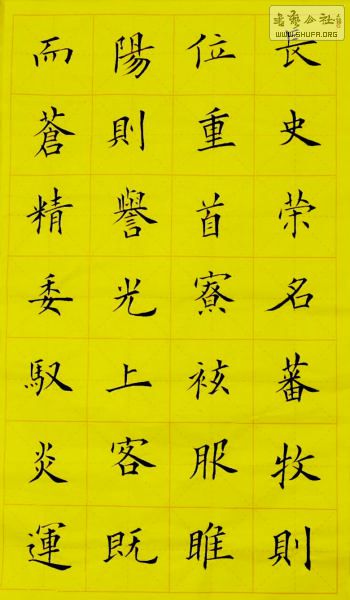 書藝公社
WWW.SHUFA.ORG
長史荣名蕃牧則
位重首寮袨服睢
陽則譽光上客既
而蒼精委馭炎運